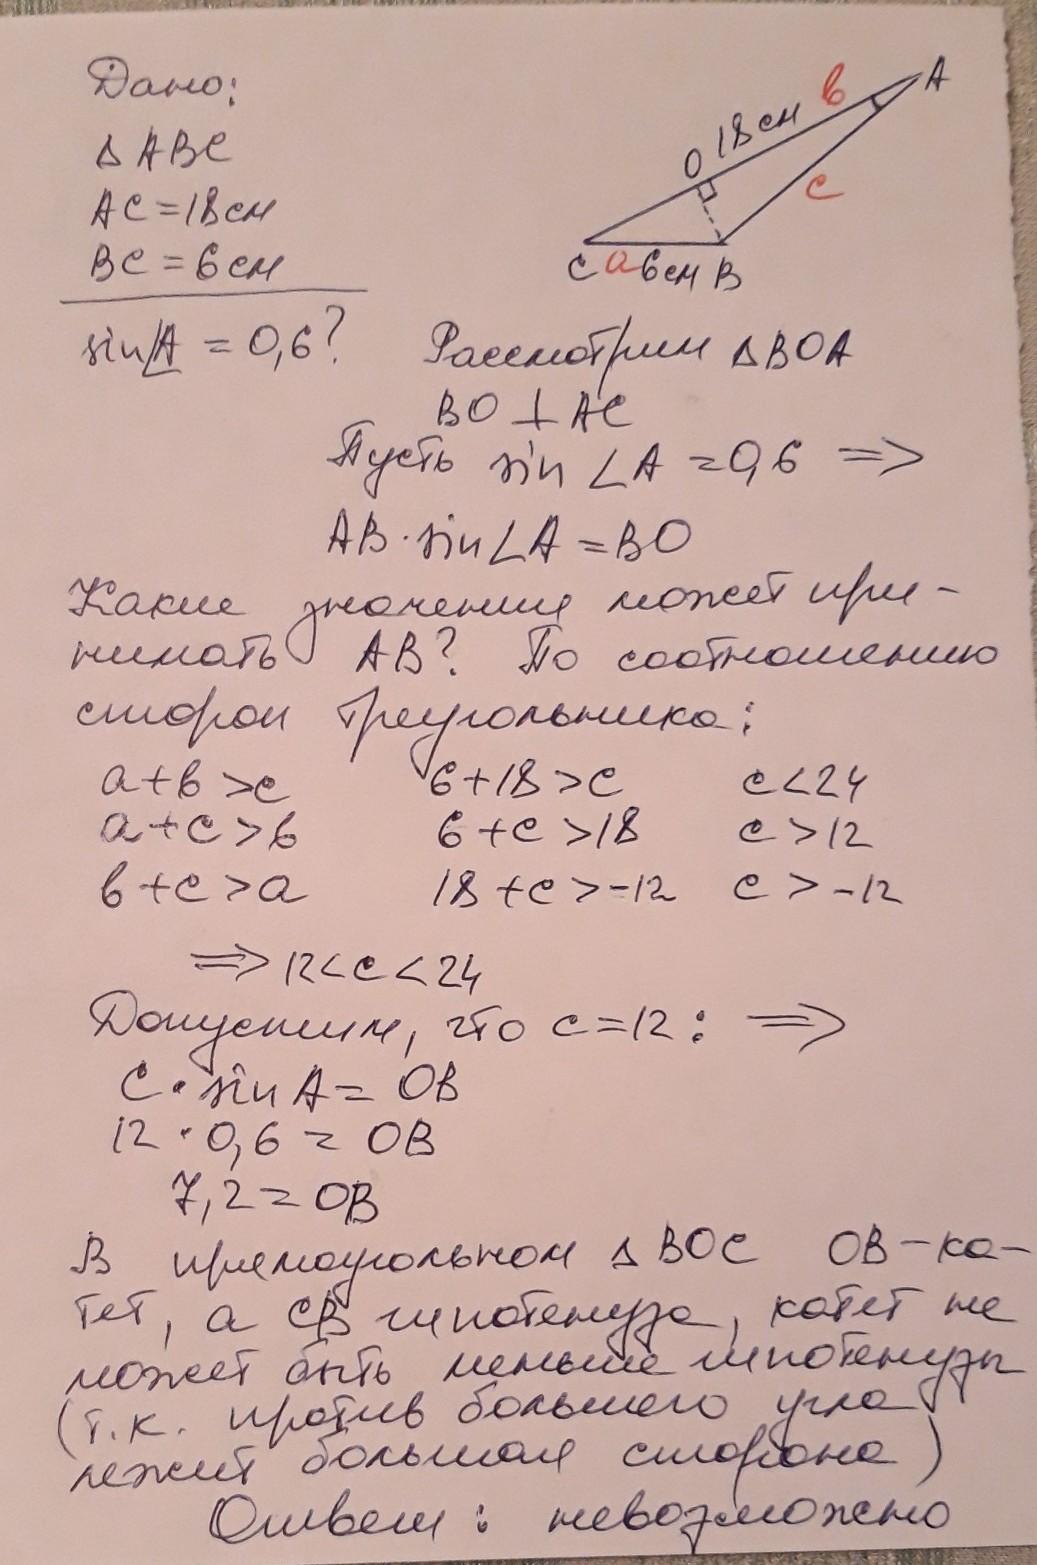 Дано:
∆ ABC
AC = 18 см
BC = 6 см
sin∠A = 0,6?
A
в
18 см
O
c
C a 6 см B
Рассмотрим ∆BOA
BO ⊥ AC
Пусть sin ∠A = 0,6 =>
AB · sin∠A = BO
Какие значения может при-
нимать AB? По соотношению
сторон треугольника:
a + в > c 6 + 18 > c c < 24
a + c > в 6 + c > 18 c > 12
в + c > a 18 + c > -12 c > -12
=> 12 < c < 24
Допустим, что c = 12: =>
C · sin A = OB
12 · 0,6 = OB
7,2 = OB
В прямоугольном ∆ BOC OB – ка-
тет, а CB гипотенуза, катет не
может быть меньше гипотенузы
(т.к. против большего угла
лежит большая сторона)
Ответ: невозможно